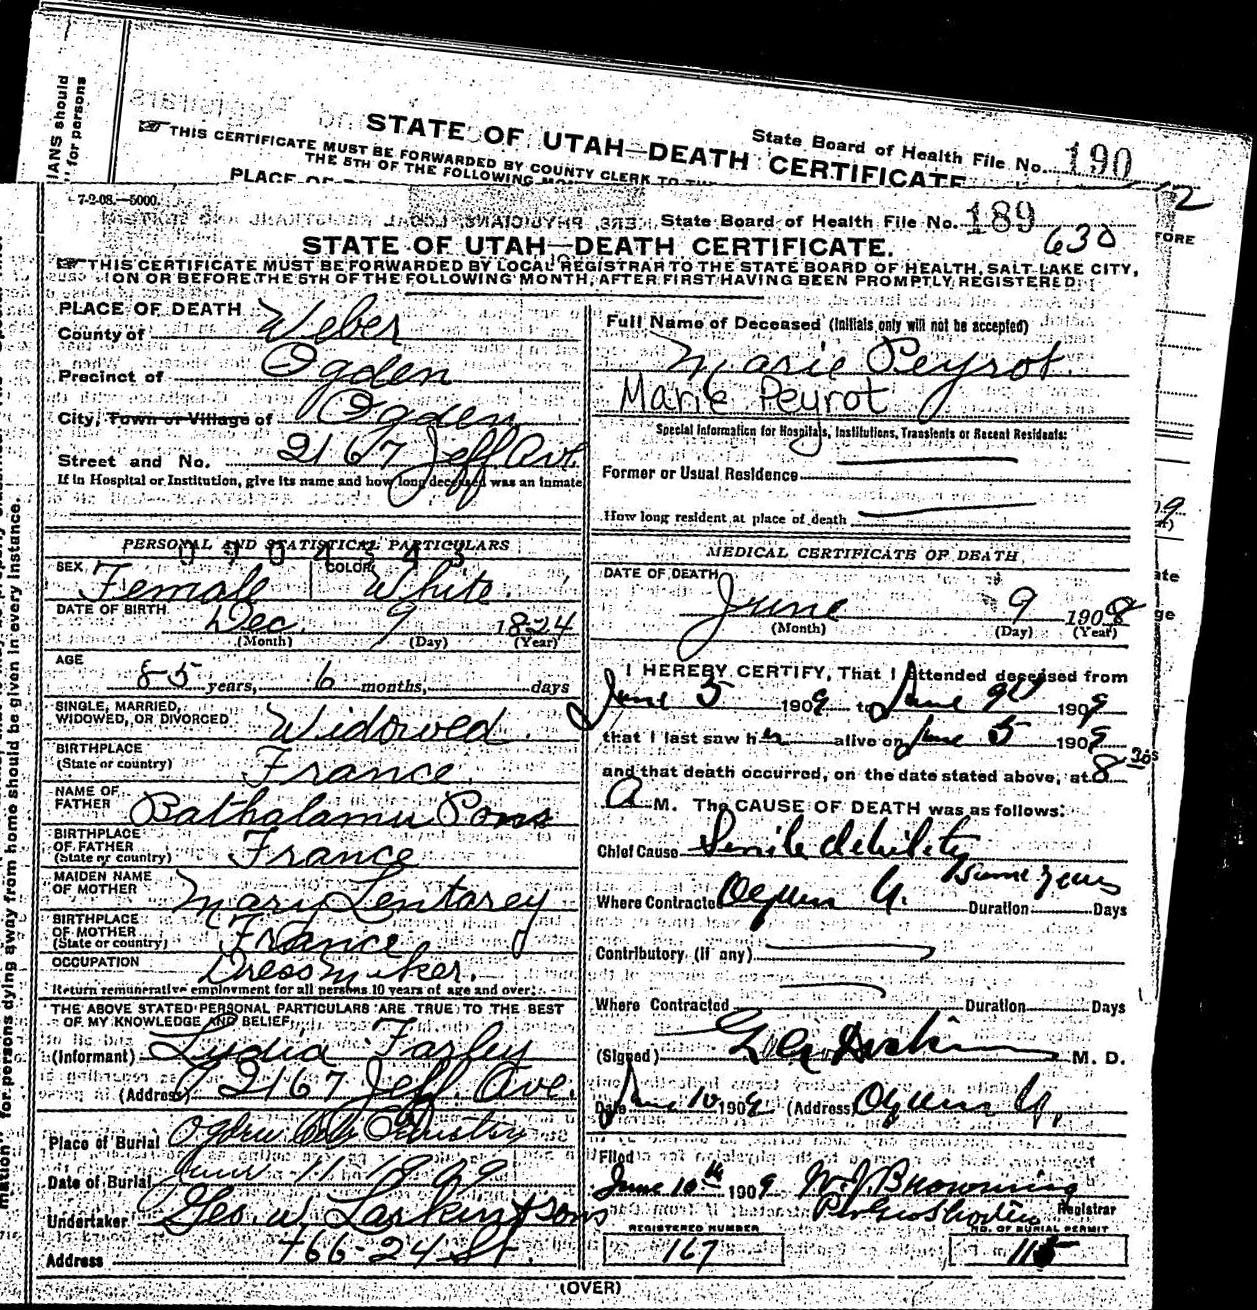 IANS should
" for persons
STATE OF UTAH—DEATH CERTIFICATE
State Board of Health File No. 190
THIS CERTIFICATE MUST BE FORWARDED BY COUNTY CLERK TO THE
THE 5TH OF THE FOLLOWING
PLACE OF
7-2-08.—5000.
State Board of Health File No. 189
630
STATE OF UTAH—DEATH CERTIFICATE.
THIS CERTIFICATE MUST BE FORWARDED BY LOCAL REGISTRAR TO THE STATE BOARD OF HEALTH, SALT LAKE CITY,
ON OR BEFORE THE 5TH OF THE FOLLOWING MONTH, AFTER FIRST HAVING BEEN PROMPTLY REGISTERED.
PLACE OF DEATH
County of Weber
Precinct of Ogden
City, Town or Village of Ogden
Street and No. 2167 Jeff Ave.
If in Hospital or Institution, give its name and how long deceased was an inmate
PERSONAL AND STATISTICAL PARTICULARS
0904343
SEX Female COLOR White.
DATE OF BIRTH Dec. 9 1824
(Month) (Day) (Year)
AGE
85 years, 6 months, days
SINGLE, MARRIED,
WIDOWED, OR DIVORCED Widowed
BIRTHPLACE
(State or country) France.
NAME OF
FATHER Bathalamu Pons
BIRTHPLACE
OF FATHER
(State or country) France
MAIDEN NAME
OF MOTHER Mary Lentarey
BIRTHPLACE
OF MOTHER
(State or country) France
OCCUPATION Dressmaker.
Return remunerative employment for all persons 10 years of age and over.
THE ABOVE STATED PERSONAL PARTICULARS ARE TRUE TO THE BEST
OF MY KNOWLEDGE AND BELIEF.
(Informant) Lydia Farley
(Address) 2167 Jeff. Ave.
Place of Burial Ogden
Date of Burial June 11 1909
Undertaker Geo. W. Larkin & Sons
Address 466-24 St.
Full Name of Deceased (Initials only will not be accepted)
Marie Peyrot.
Marie Peyrot
Special Information for Hospitals, Institutions, Transients or Recent Residents:
Former or Usual Residence
How long resident at place of death
MEDICAL CERTIFICATE OF DEATH
DATE OF DEATH
June 9 1909
(Month) (Day) (Year)
I HEREBY CERTIFY, That I attended deceased from
June 5 1909 to June 9th 1909
that I last saw her alive on June 5 1909
and that death occurred, on the date stated above, at 8 30
A M. The CAUSE OF DEATH was as follows:
Chief Cause Senile debility
Some years
Where Contracted Ogden U. Duration Days
Contributory (if any)
Where Contracted Duration Days
(Signed) M. D.
Date June 10 1909 (Address) Ogden U.
Filed
June 10th 1909 W. J. Browning
Registrar
REGISTERED NUMBER
167
NO. OF BURIAL PERMIT
115
(OVER)
for persons dying away from home should be given in every instance.